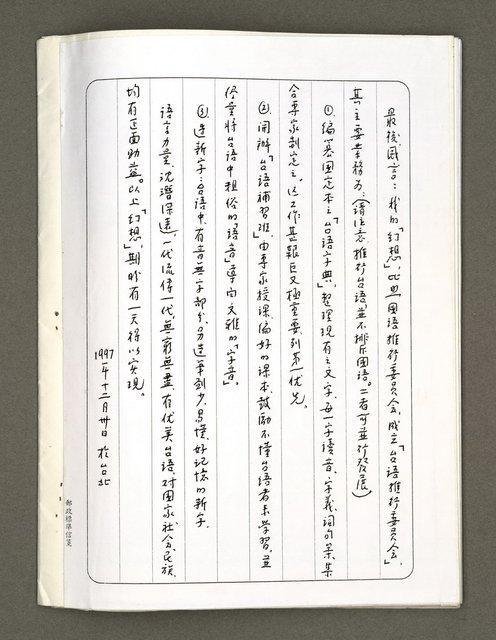 最後國言:我的「幻想」,比照國語推行委員會,成立「台語推行委員會」
其主要業務为:(請注意,推行台語並不排斥國語。二者可並行發展)
①、編纂固定本之「台語字典」,整理現有之文字,每一字讀音、字義、詞句業、集
合專家制定之,这工作甚艱巨又極重要列为第一优先。
②、開辦「台語補習班」,由專家授課、編好的課本,鼓励不懂台語者来學習,並
侭量將台語中粗俗的「語音」導向文雅的「字音」。
③、造新字:台語中,有音無字部分,另造筆劃少、易懂、好記憶的新字。
語言力量,沈潛深遠,一代流傳一代,無窮無盡,有优美台語,对國家社会民族,
均有正面助益。以上「幻想」,期盼有一天得以实現。
1997年十二月卅日 於台北
郵政標準信箋